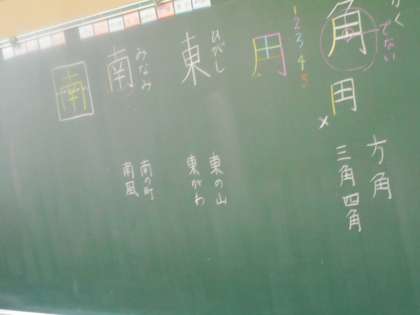 かく
角
でない
用
×
方角
三角四角
1
2
3
4
5
用
ひがし
東
東の山
東がわ
みなみ
南
南の町
南風
南